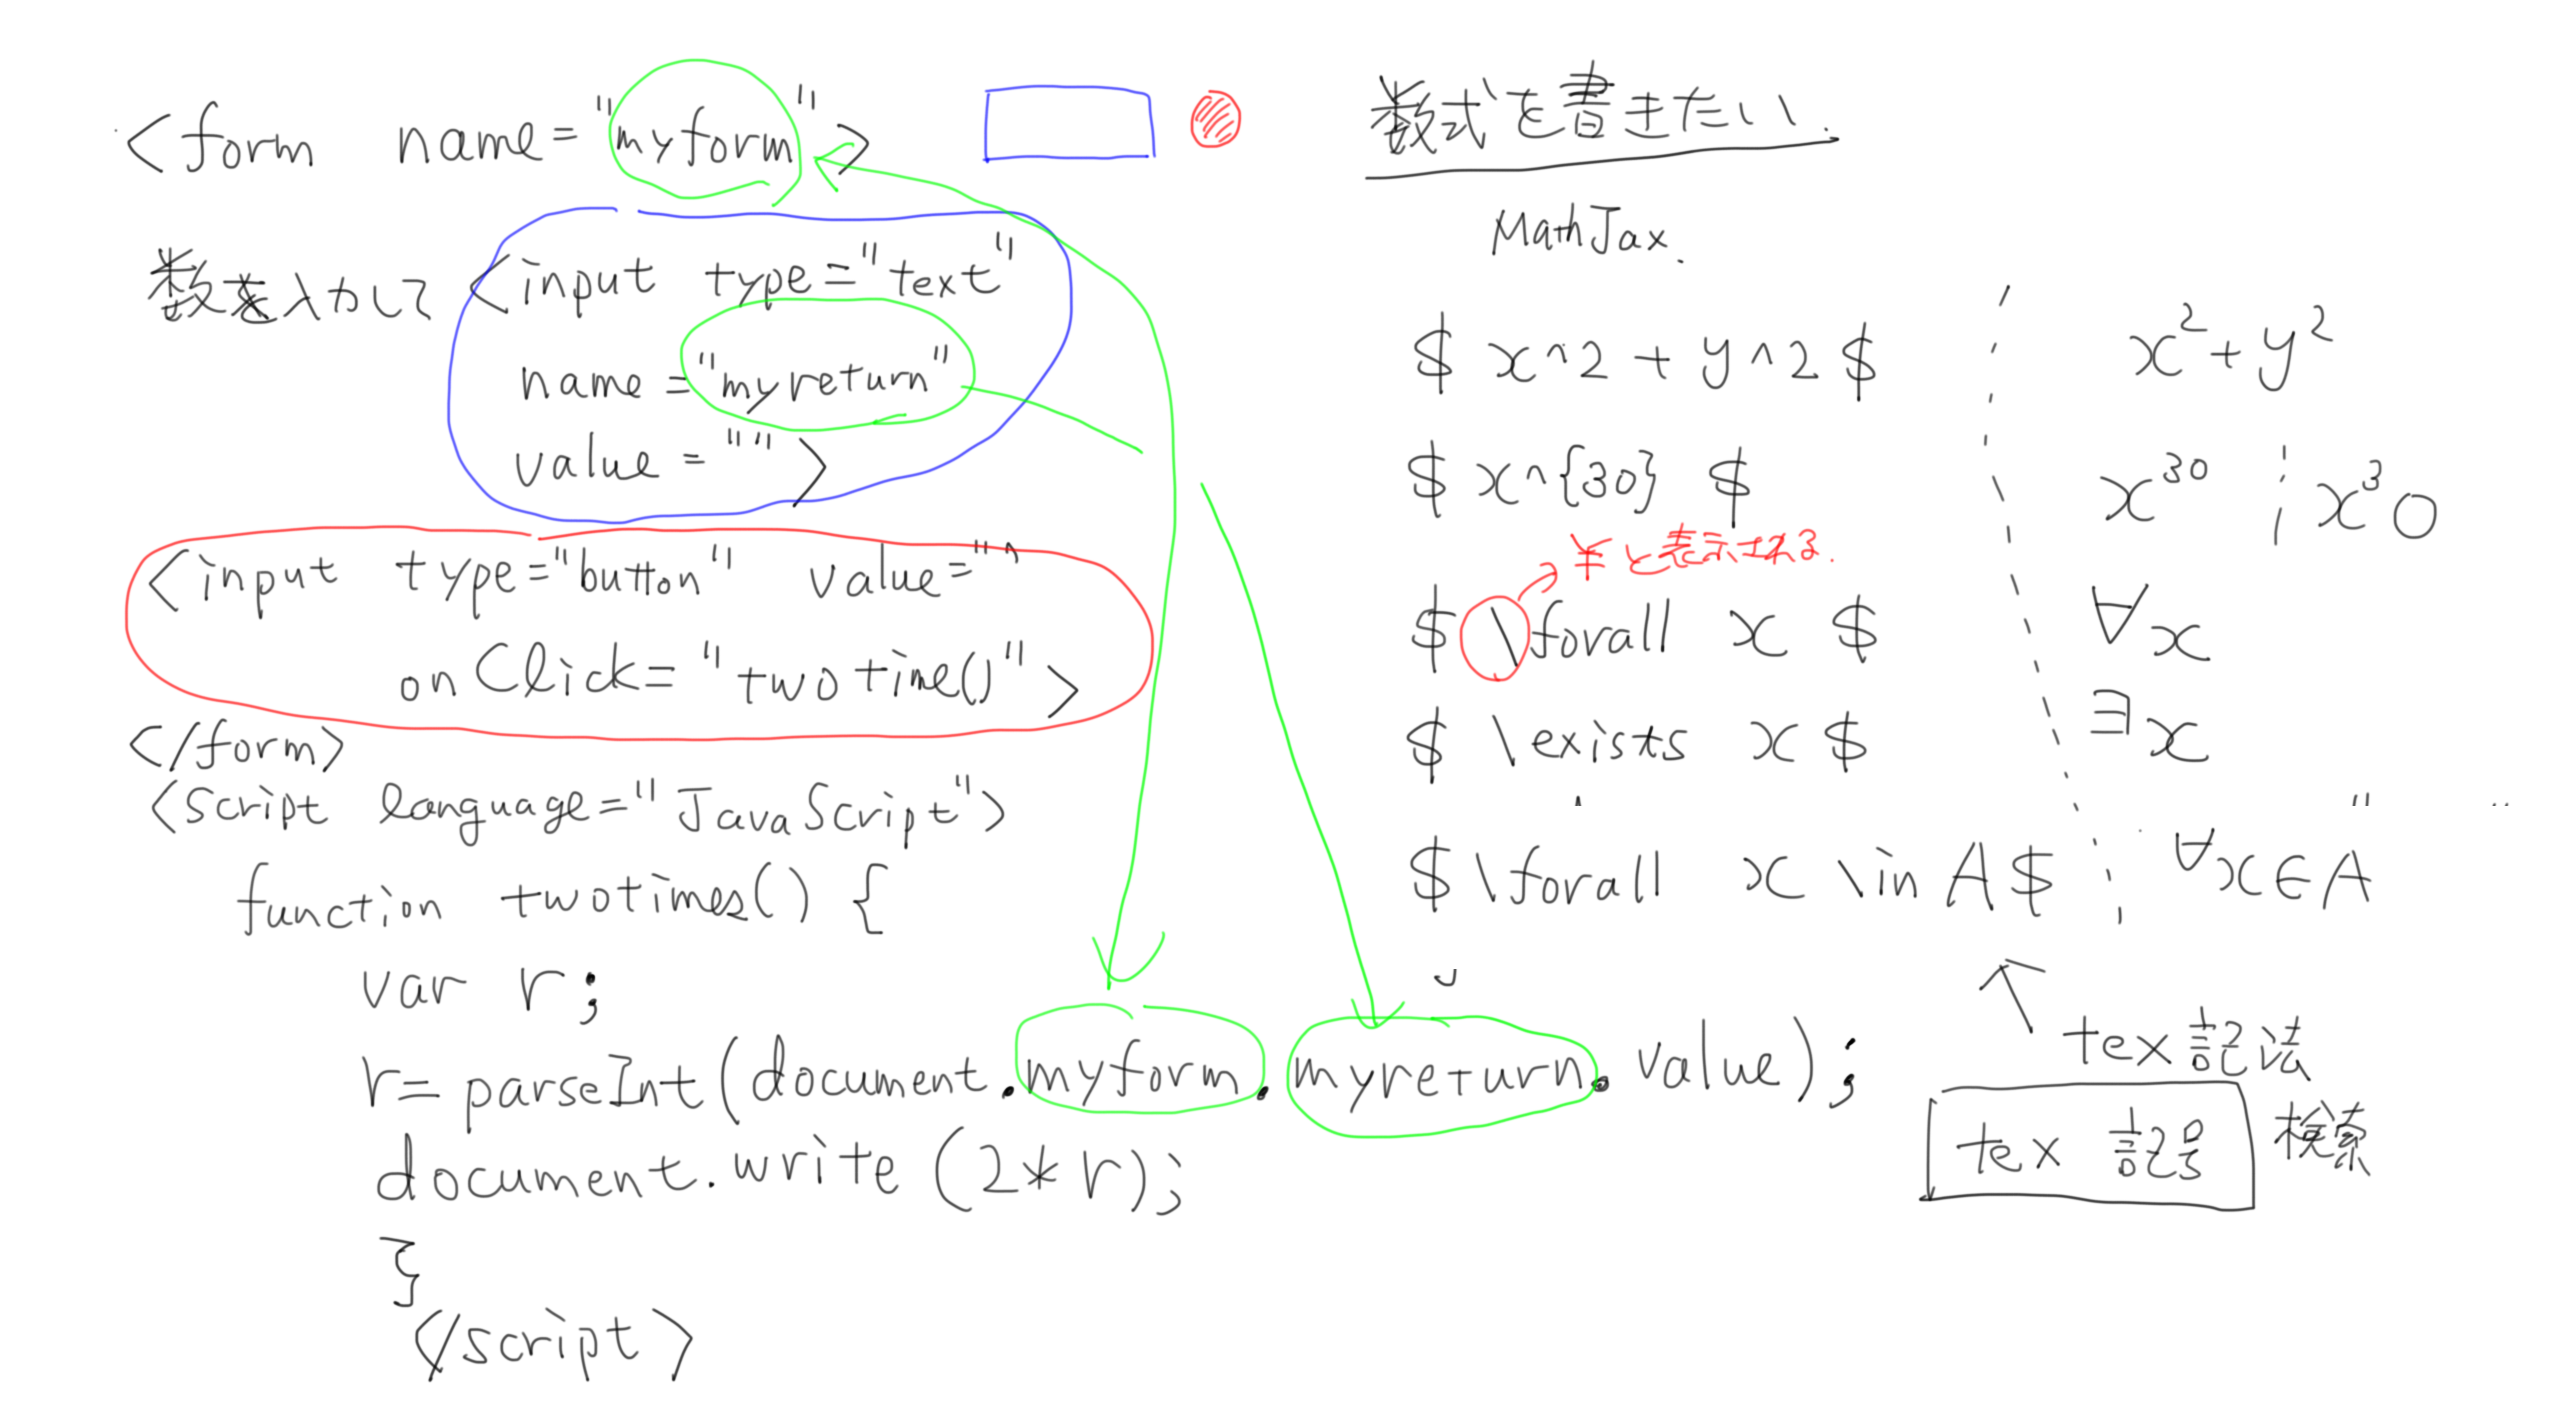 <form name="myform">
数を入力して <input type="text"
name="myreturn"
value="">
<input type="button" value=""
onClick="twotime()">
</form>
<script language="JavaScript">
function twotimes() {
var r;
r=parseInt(document.myform.myreturn.value);
document.write(2*r);
}
</script>
数式を書きたい.
MathJax.
$ x^2 + y^2 $ x²+y²
$ x^{30} $ x³⁰ x³0
¥と表示される.
$ \forall x $ ∀x
$ \exists x $ ∃x
$ \forall x \in A $ ∀x∈A
tex記法
tex 記号 検索